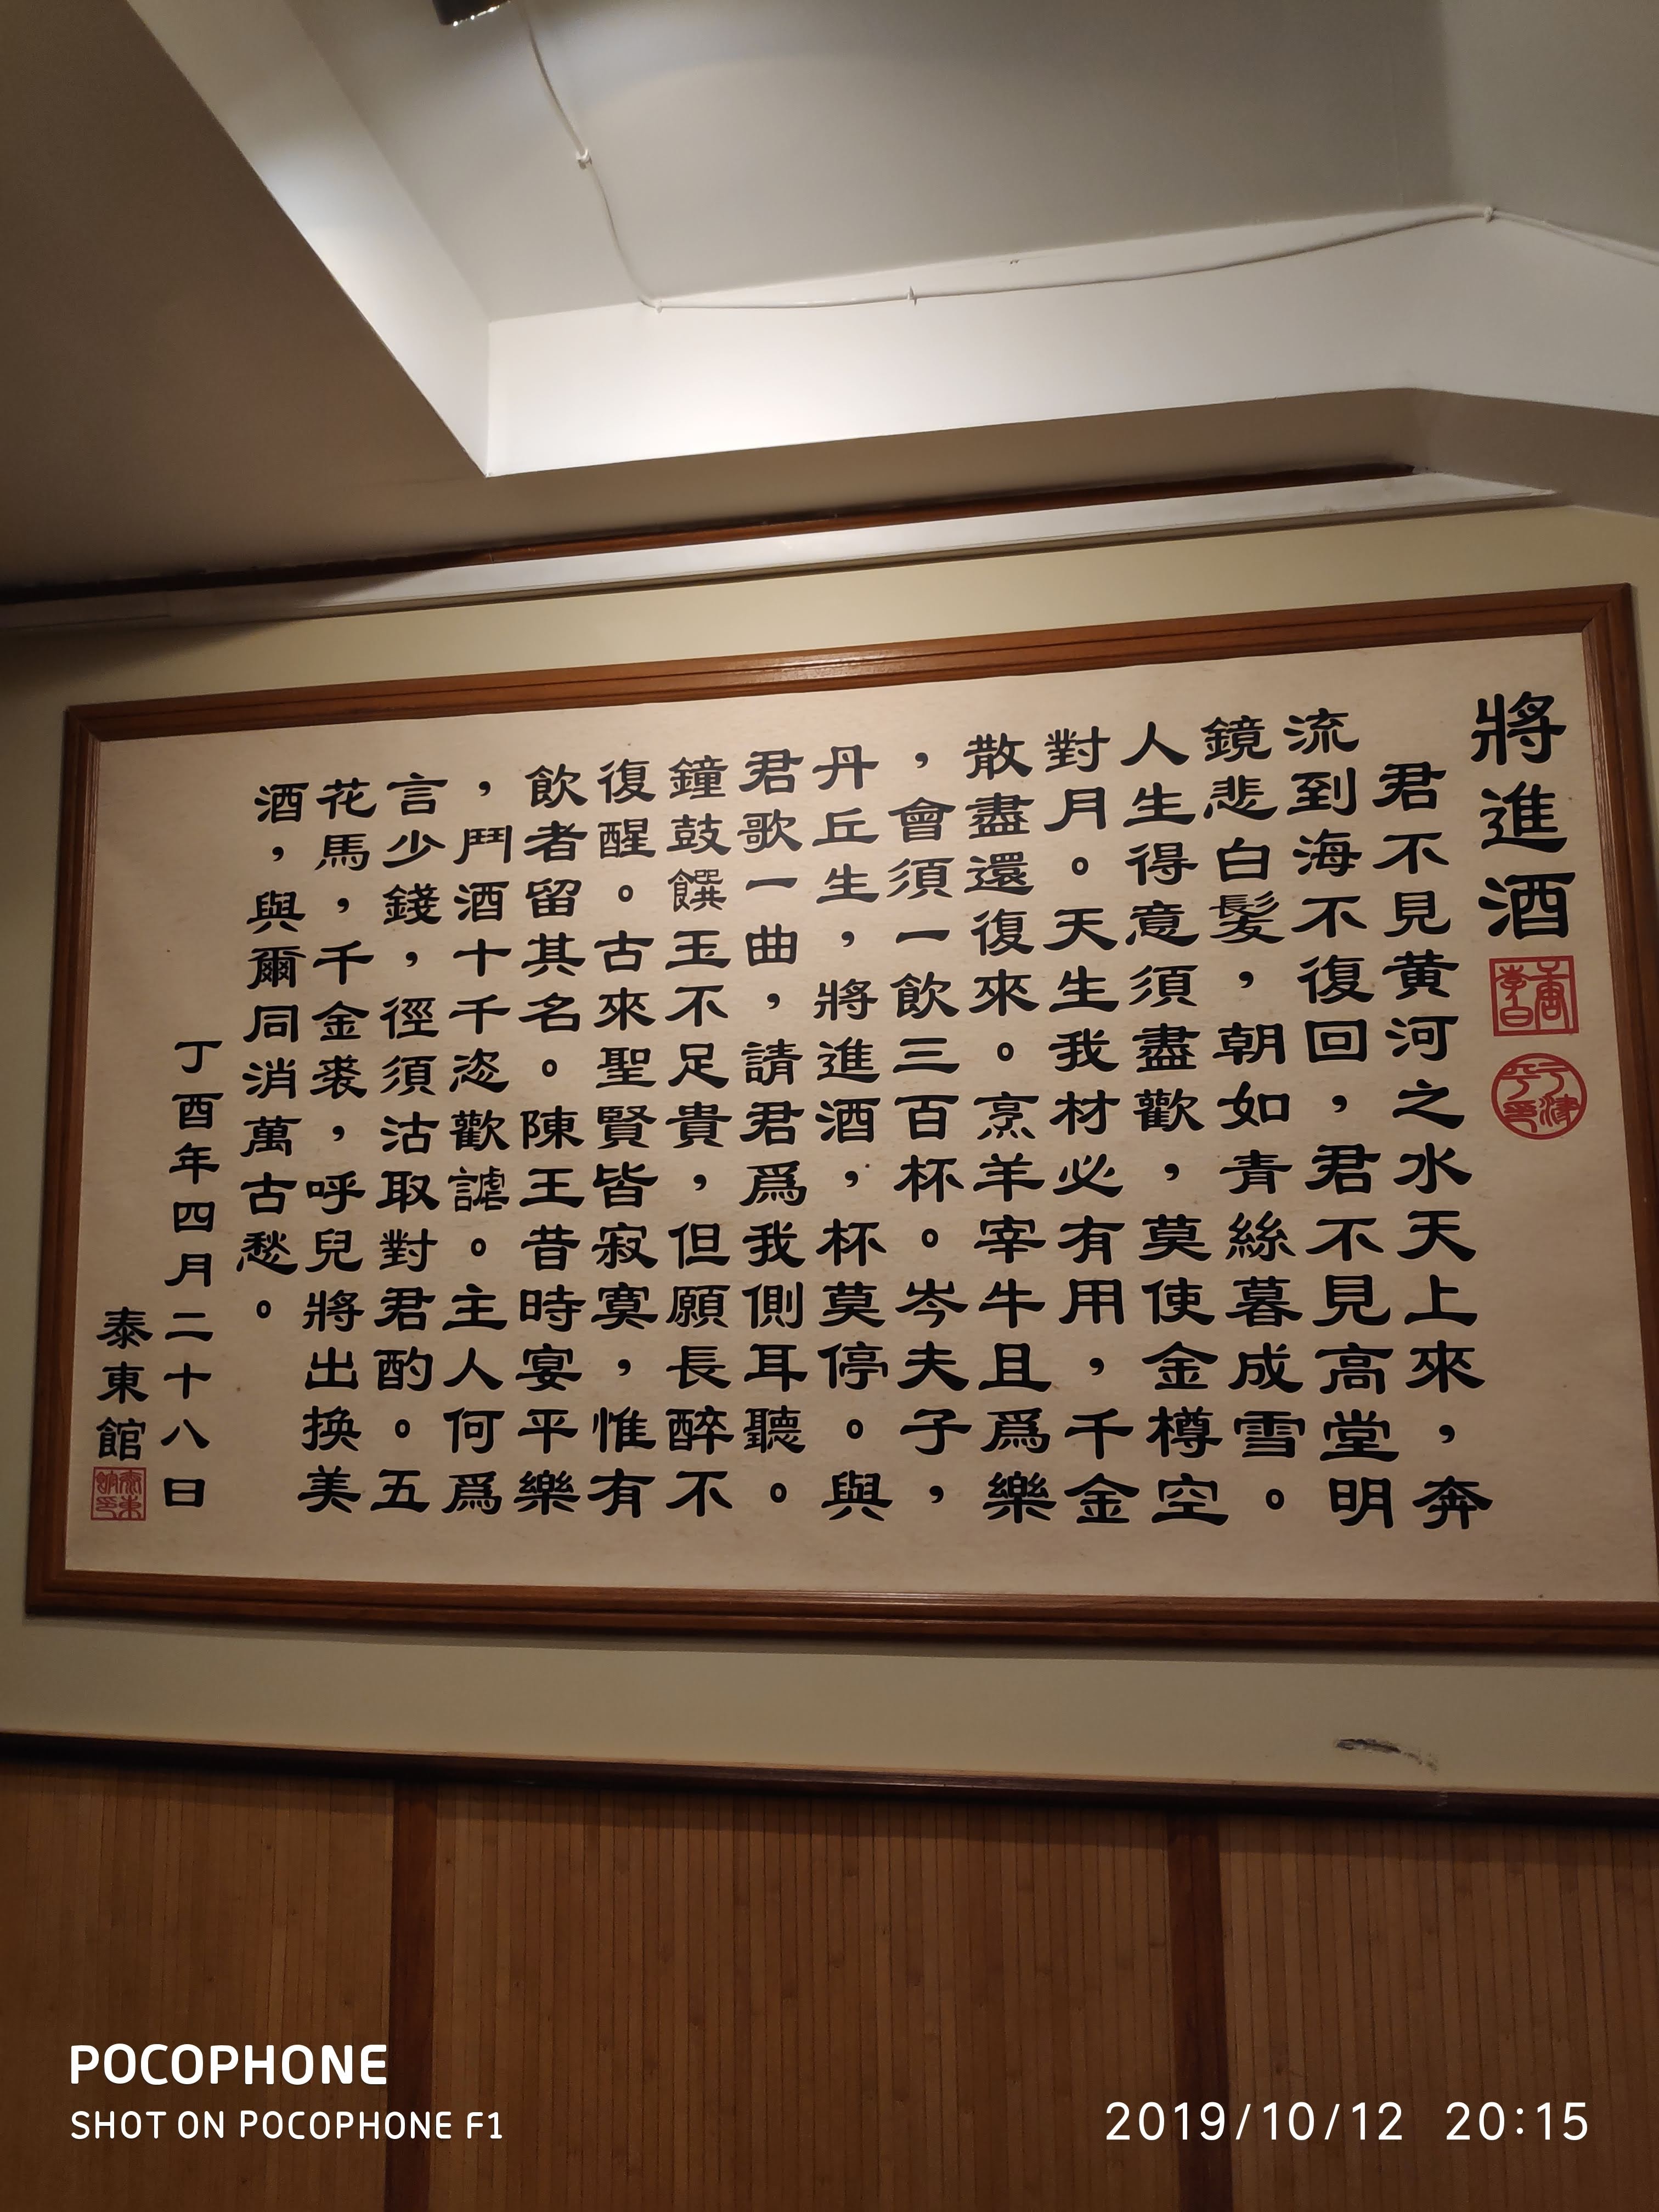 將進酒
君不見黄河之水天上來，奔
流到海不復回，君不見高堂明
鏡悲白髪，朝如青絲暮成雪。
人生得意須盡歡，莫使金樽空
對月。天生我材必有用，千金
散盡還復來。烹羊宰牛且爲樂
，會須一飲三百杯。岑夫子，
丹丘生，將進酒，杯莫停。與
君歌一曲，請君爲我側耳聽。
鐘鼓饌玉不足貴，但願長醉不
復醒。古來聖賢皆寂寞，惟有
飲者留其名。陳王昔時宴平樂
，鬥酒十千恣歡謔。主人何爲
言少錢，徑須沽取對君酌。五
花馬，千金裘，呼兒將出換美
酒，與爾同消萬古愁。
丁酉年四月二十八日
泰東館
POCOPHONE
SHOT ON POCOPHONE F1
2019/10/12 20:15